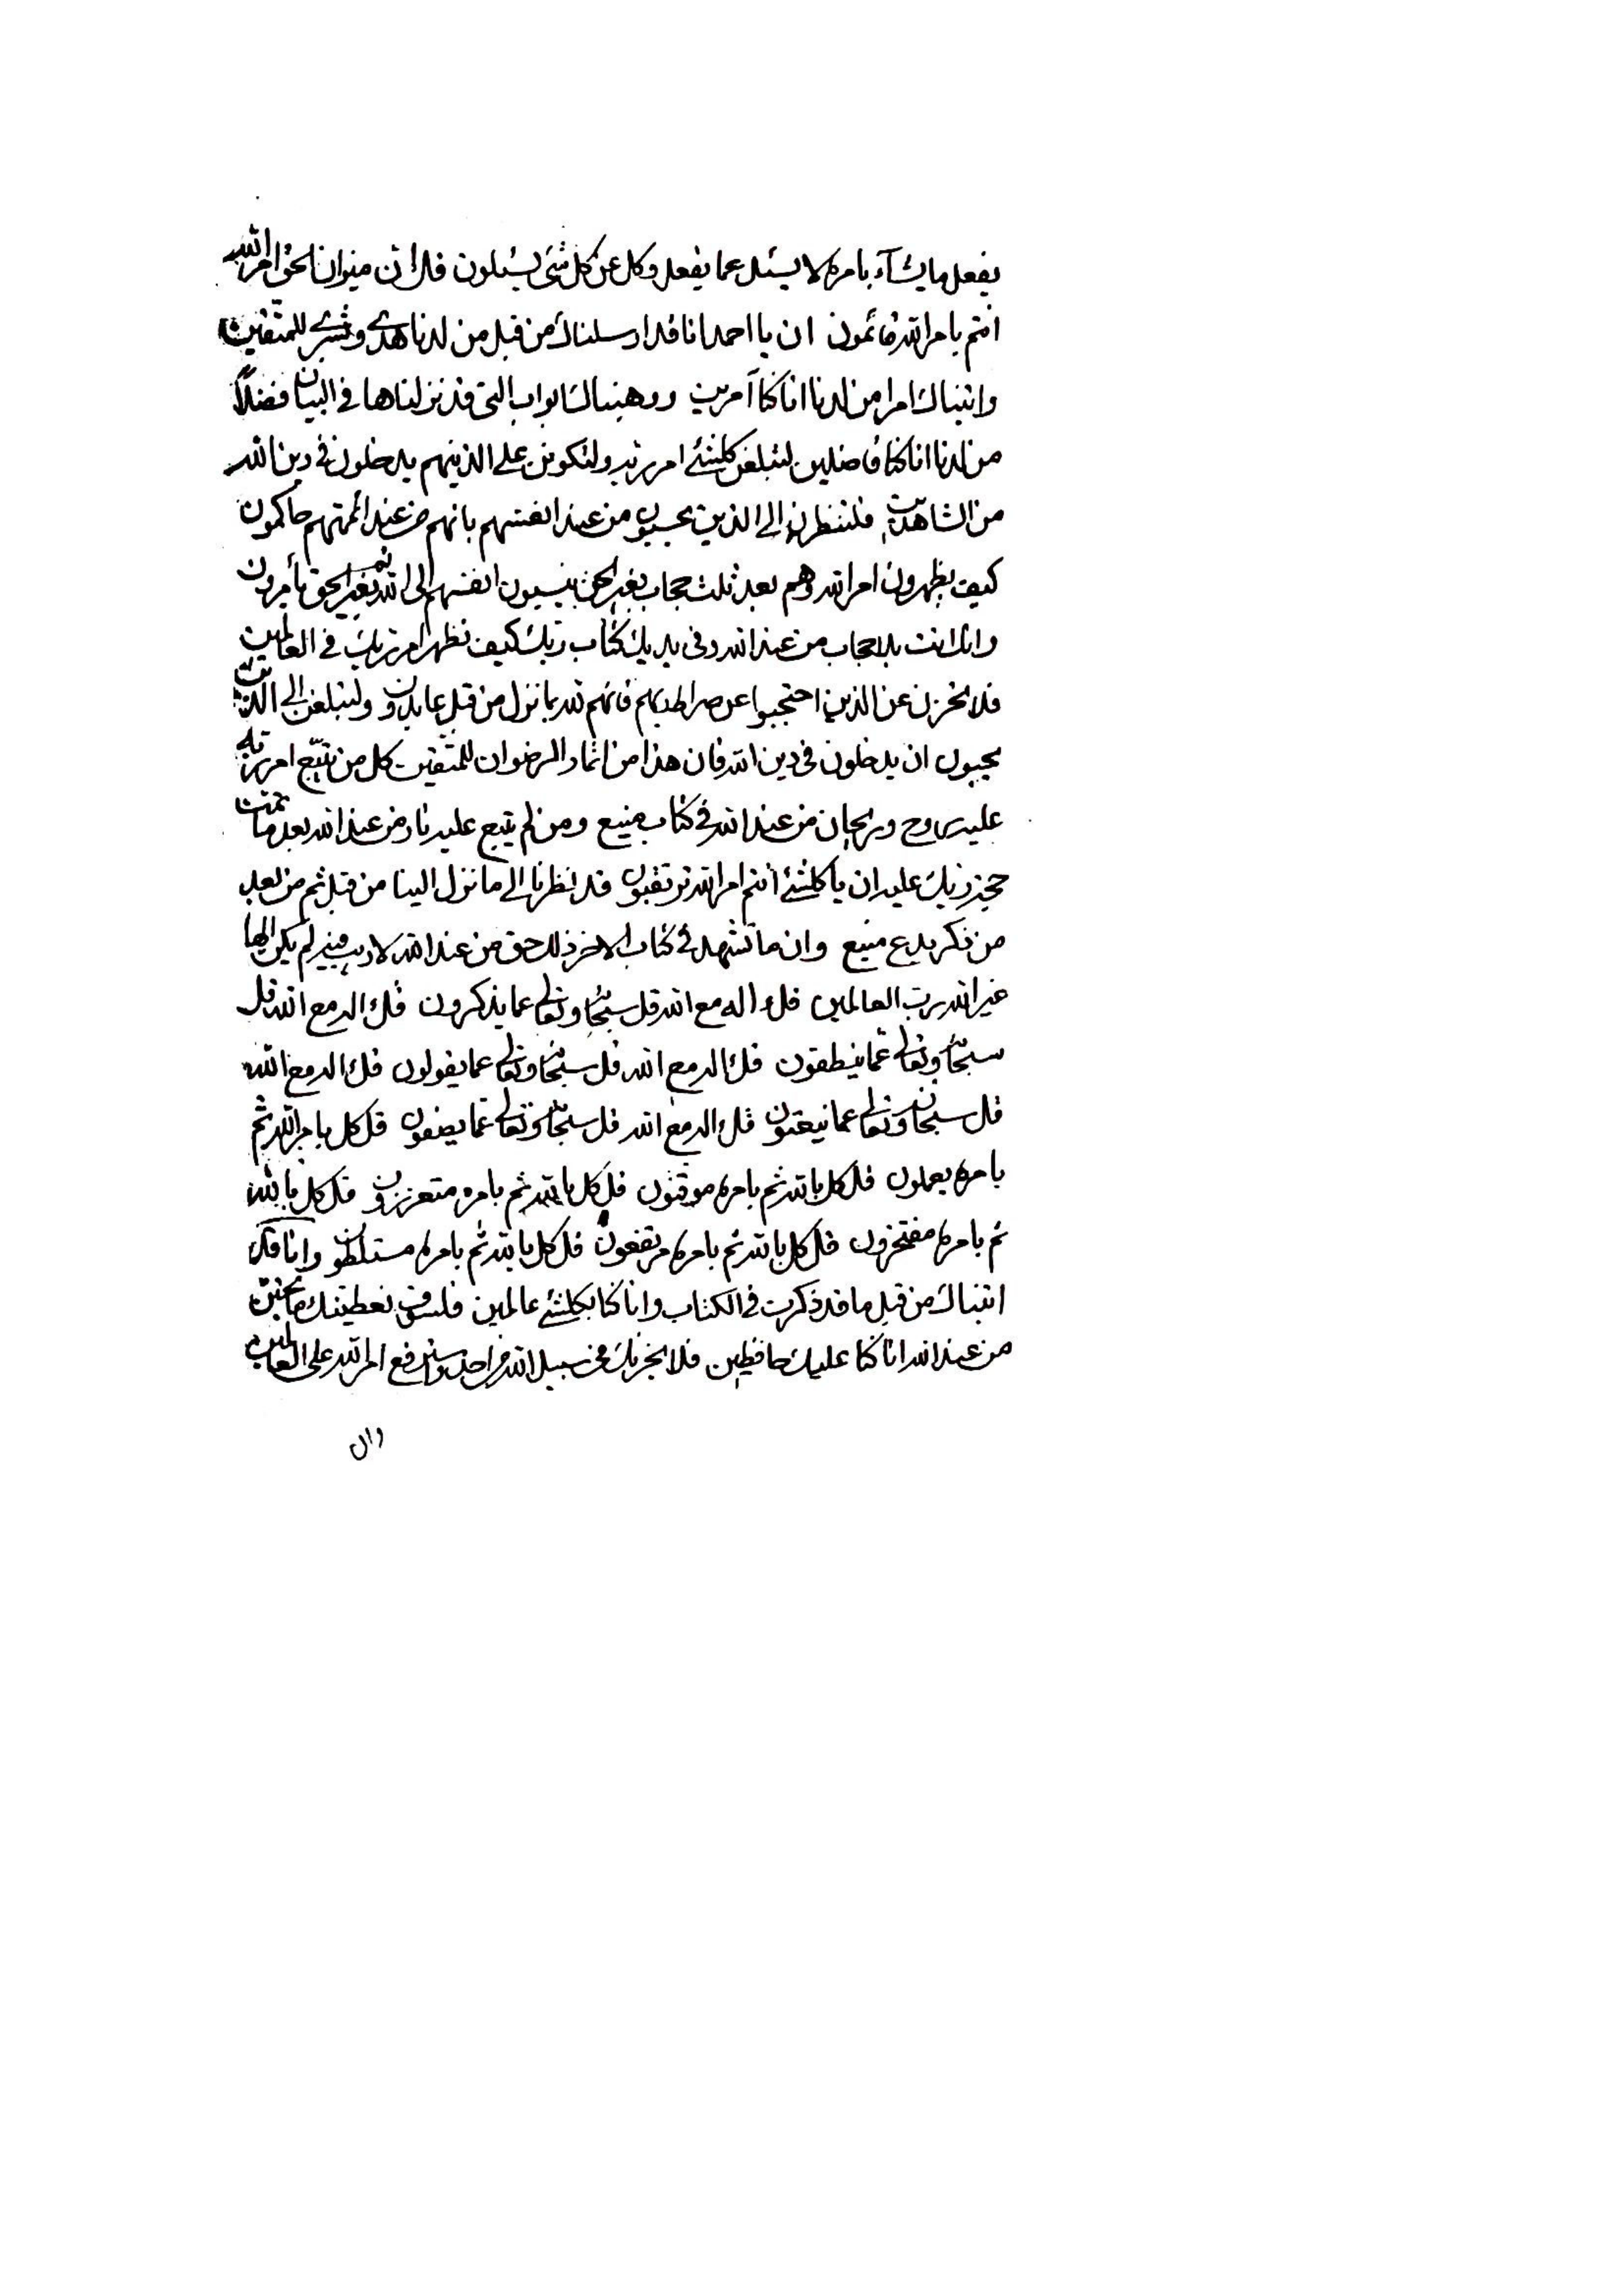 يفعل ما يشآء بامره لا يسئل عما يفعل وكل عن كل شئ يسئلون قل ان ميزان الحق امر الله
انتم بامر الله قائمون ان يا احمد انا قد ارسلناك من قبل من لدنا هدى وبشرى للمتقين
واتيناك امرا من لدنا انا كنا آمرين ووهبناك ابواب التى قد نزلناها فى البيان فضلاً
من لدنا انا كنا فاضلين لتبلغن كلشئ امر ربه ولتكونن على الذينهم يدخلون فى دين الله
من الشاهدين فلتنظرن الى الذين يحسبون من عند انفسهم بانهم من عند ائمتهم حاكمون
كيف يظهرون امر الله وهم بعد ثلث حجاب بغير الحق ينسبون انفسهم الى الله ثم بغير الحق يأمرون
وانك انت بلا حجاب من عند الله وفى يديك كتاب ربك كيف تظهر امر ربك فى العالمين
فلا تحزن عن الذين احتجبوا عن صراط ربهم فانهم لله بما نزل من قبل عابدون ولتبلغن الى الذين
يحبون ان يدخلون فى دين الله فان هذا من اثمار الرضوان للمتقين كل من يتبع امر ربه
عليه روح وريحان من عند الله فى كتاب منيع ومن لم يتبع عليه نار من عند الله بعد ما تمت
حجة ربك عليه ان يا كلشئ انتم امر الله ترتقبون قد نظرنا الى ما نزل الينا من قبل ثم من بعد
من ذكر بديع منيع وان ما تشهد فى كتاب الاخر ذلك حق من عند الله لا ريب فيه لم يكن الها
غير الله رب العالمين قل ء اله مع الله قل سبحانه وتعالى عما يذكرون قل ء اله مع الله قل
سبحانه وتعالى عما ينطقون قل ء اله مع الله قل سبحانه وتعالى عما يقولون قل ء اله مع الله
قل سبحانه وتعالى عما ينعتون قل ء اله مع الله قل سبحانه وتعالى عما يصفون قل كل بامر الله ثم
بامره يعملون قل كل بالله ثم بامره موقنون قل كل بالله ثم بامره متعززون قل كل بالله
ثم بامره مفتخرون قل كل بالله ثم بامره مرتفعون قل كل بالله ثم بامره مستلطون وانا قد
اتيناك من قبل ما قد ذكرت فى الكتاب وانا كنا بكلشئ عالمين فلسوف نعطينك ما تحبن
من عند الله انا كنا عليك حافظين فلا يحزنك فى سبيل الله من احد وسنرفع امر الله على العالمين
وان